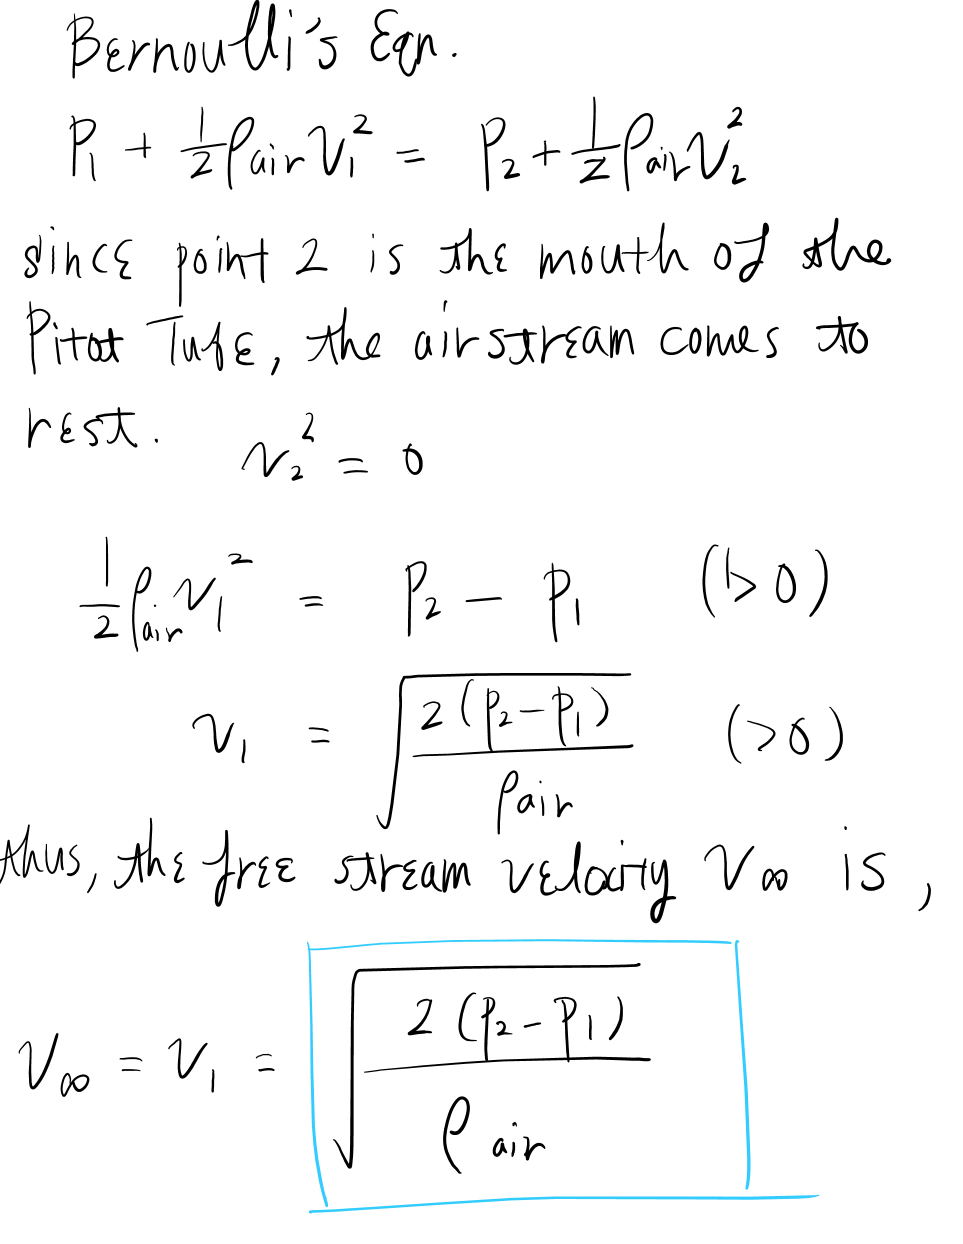 Bernoulli's Eqn.
P₁ + ½ρair v₁² = P₂ + ½ρair v₂²
since point 2 is the mouth of the
Pitot Tube, the airstream comes to
rest. v₂² = 0
½ρair v₁² = P₂ − P₁ (>0)
v₁ = √(2(P₂−P₁)/ρair) (>0)
thus, the free stream velocity V∞ is,
V∞ = v₁ = √(2(P₂−P₁)/ρair)